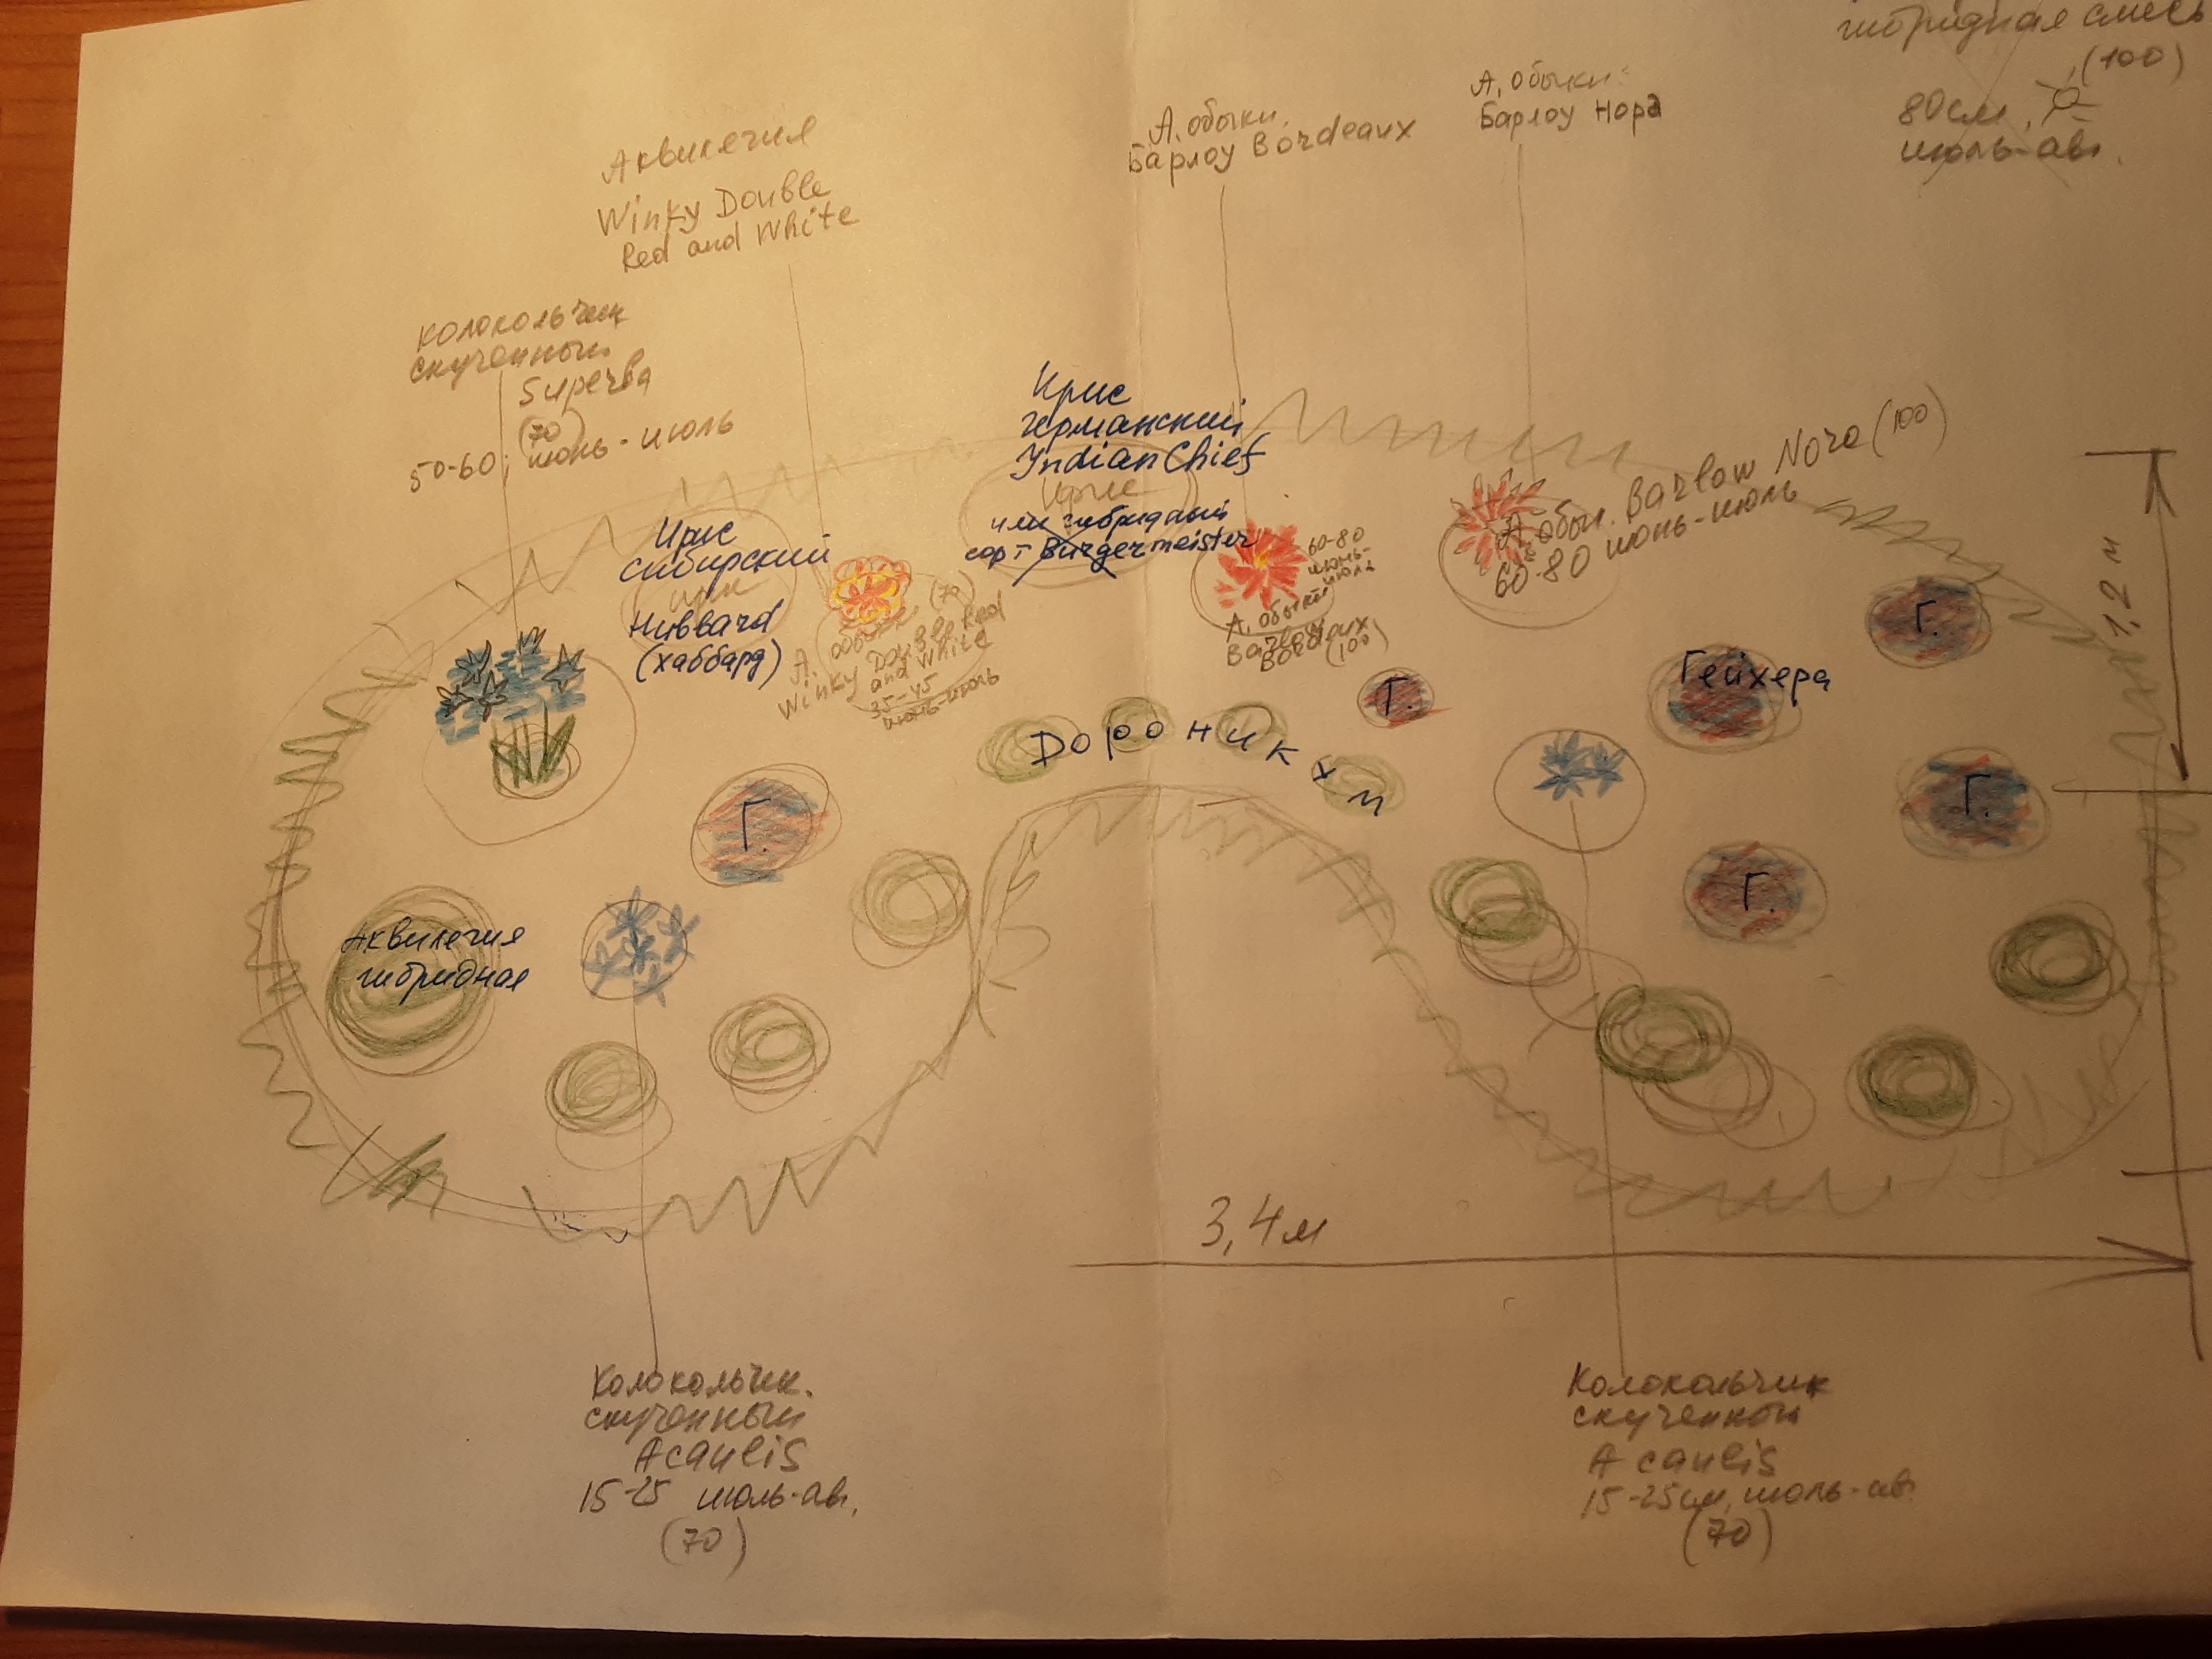 гибридная смесь
(100)
80см,
июль-авг.
А. обыкн.
Барлоу Нора
А. обыкн.
Барлоу Bordeaux
Аквилегия
Winky Double
Red and White
колокольчик
скученный
Superba
(70)
50-60, июнь-июль
Ирис
германский
Indian Chief
Ирис
или гибридный
сорт Burgermeister
Ирис
сибирский
Ирис
Hubbard
(хаббард)
А. обыкн. (70)
Winky Double Red
and White
35-45
июнь-июль
60-80
июнь-
июль
А. обыкн.
Barlow
Bordeaux
(100)
А. обыкн. Barlow Nora (100)
60-80 июнь-июль
1,2 м
Г.
Гейхера
Г.
Дороникум
Г.
Г.
Г.
Аквилегия
гибридная
3,4 м
Колокольчик.
скученный
Acaulis
15-25 июль-авг.
(70)
Колокольчик
скученный
Acaulis
15-25см, июль-авг.
(70)